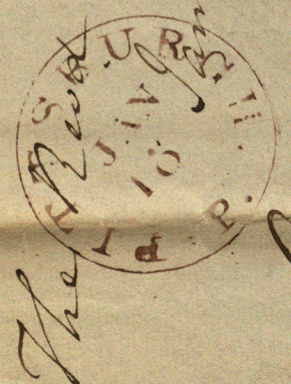 PITTSBURGH. P.
JAN
10
The Revd.